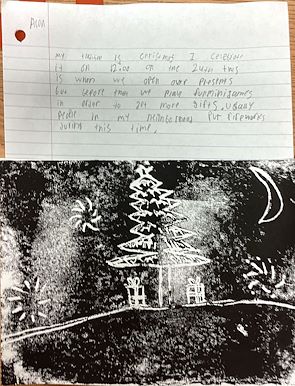 my tradition is christmas I celebrate
it on 12:00 on the 24th this
is when we open our presents
but before that we play fun minigames
in order to get more gifts, usually
people in my neighborhood put fireworks
during this time.